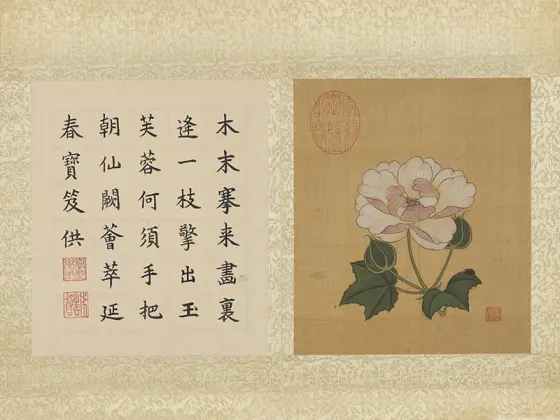 木末搴来畫裏
逢一枝擎出玉
芙蓉何須手把
朝仙闕薈萃延
春寶笈供